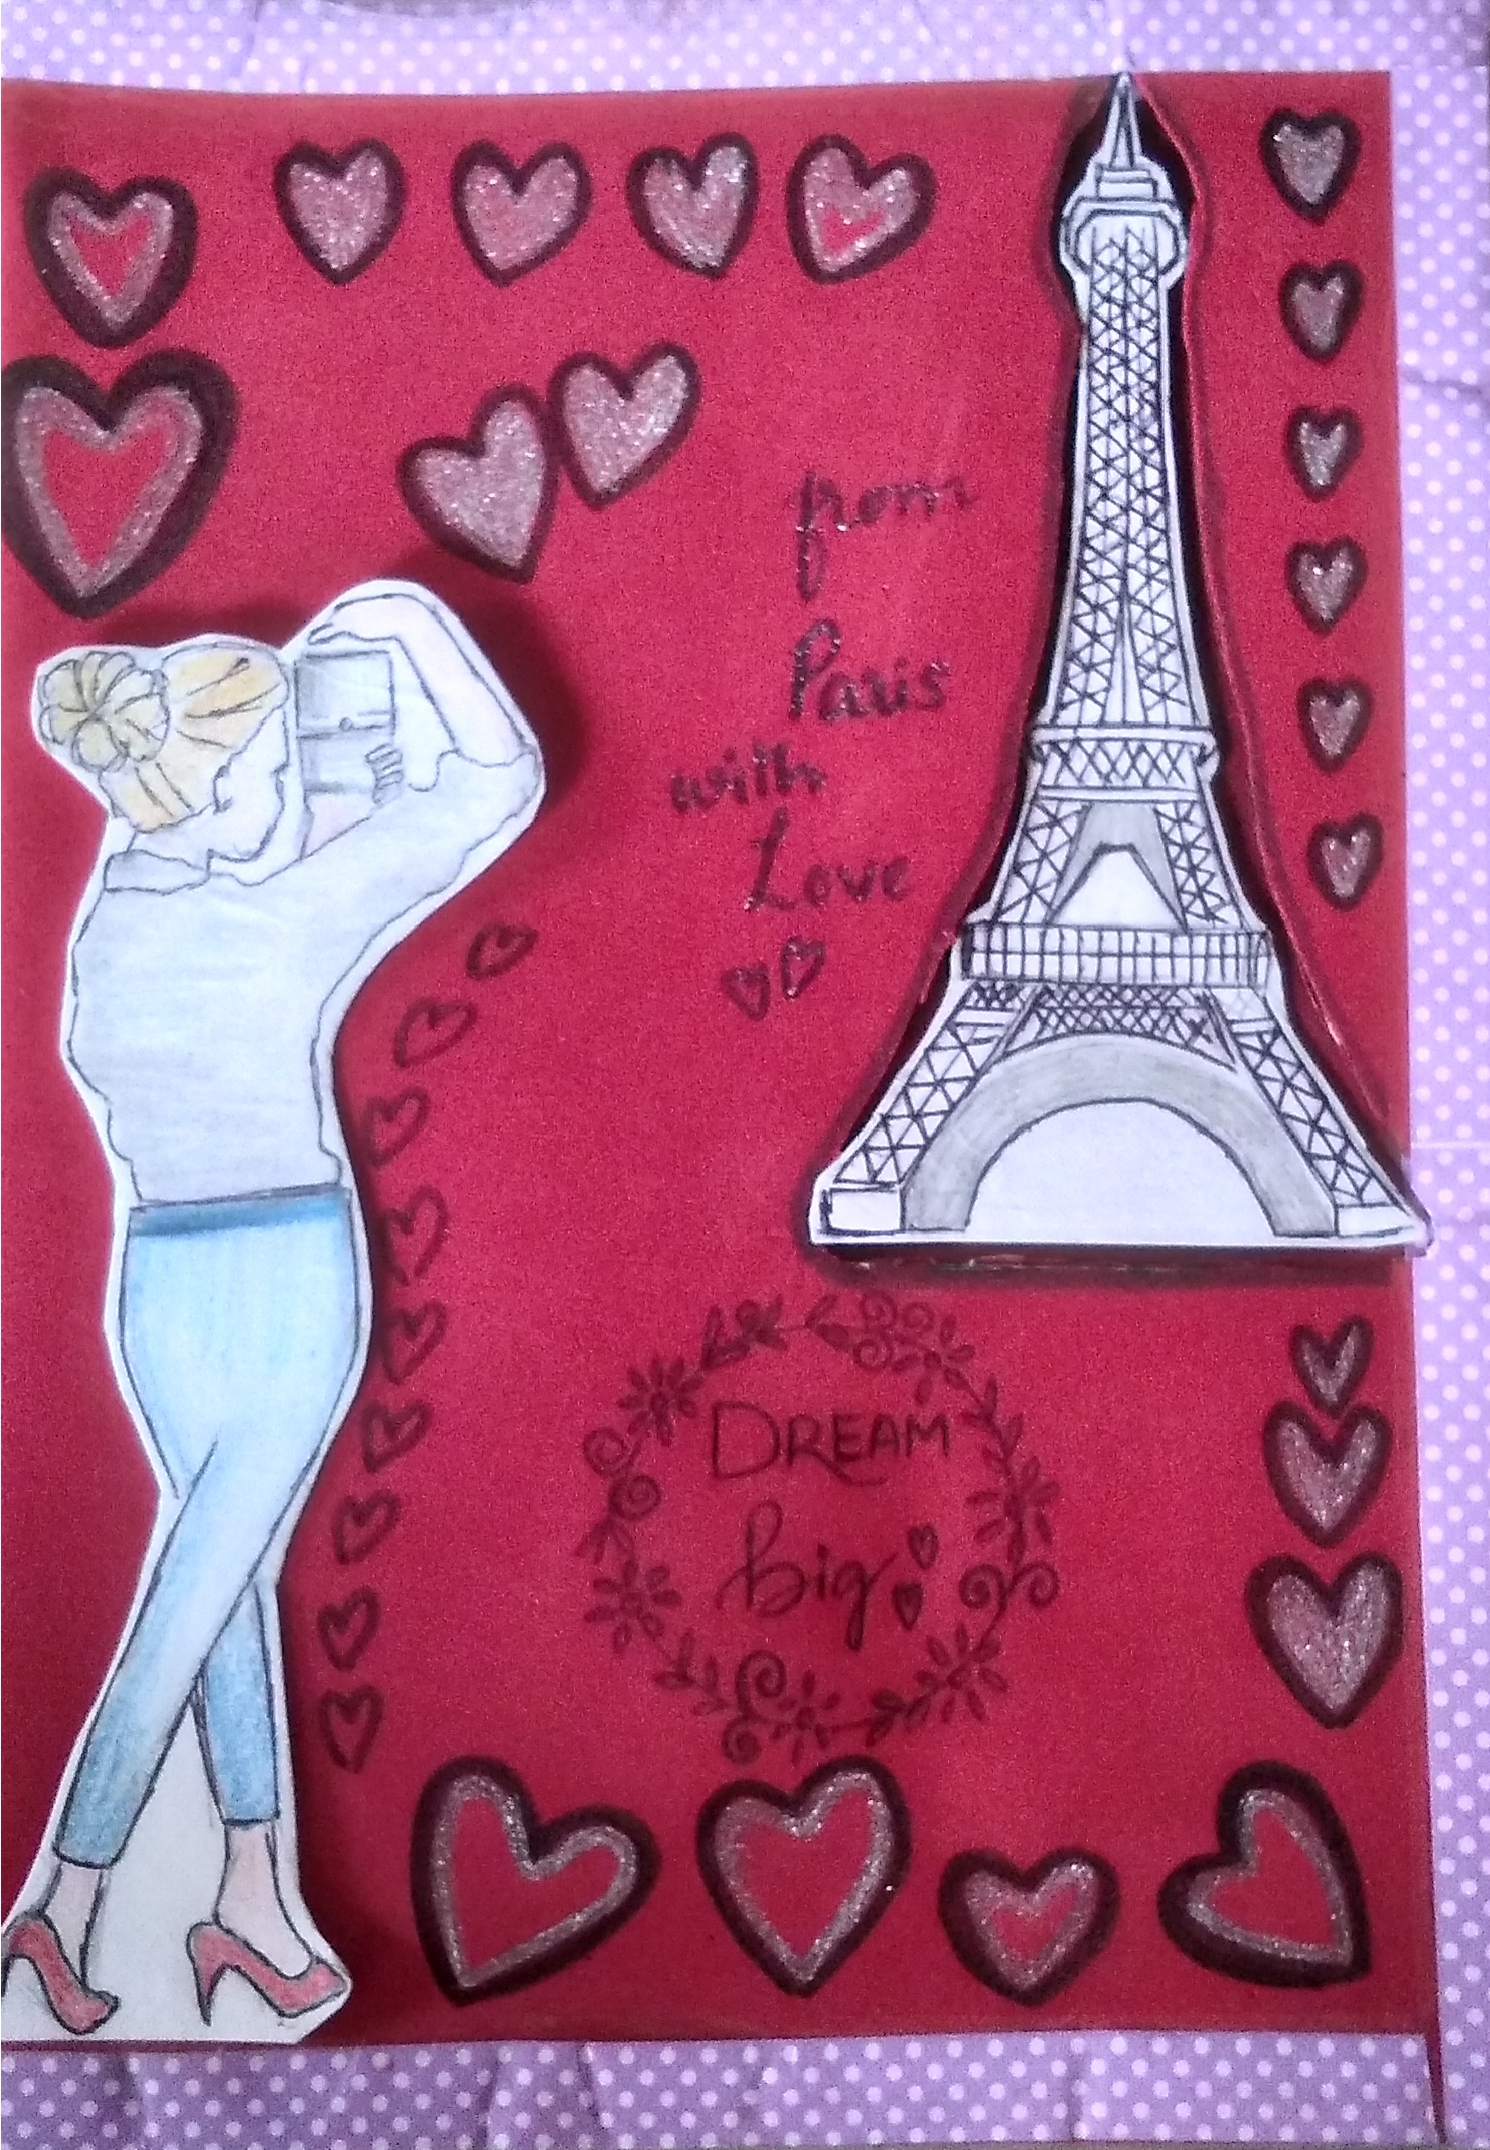 from
Paris
with
Love
DREAM
big